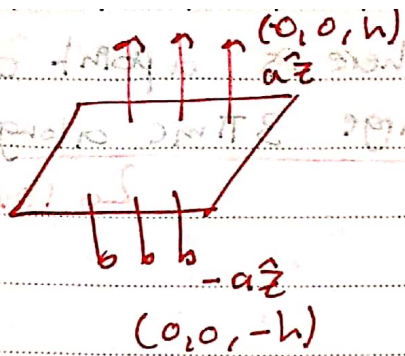 (0, 0, h)
aẑ
-aẑ
(0,0,-h)